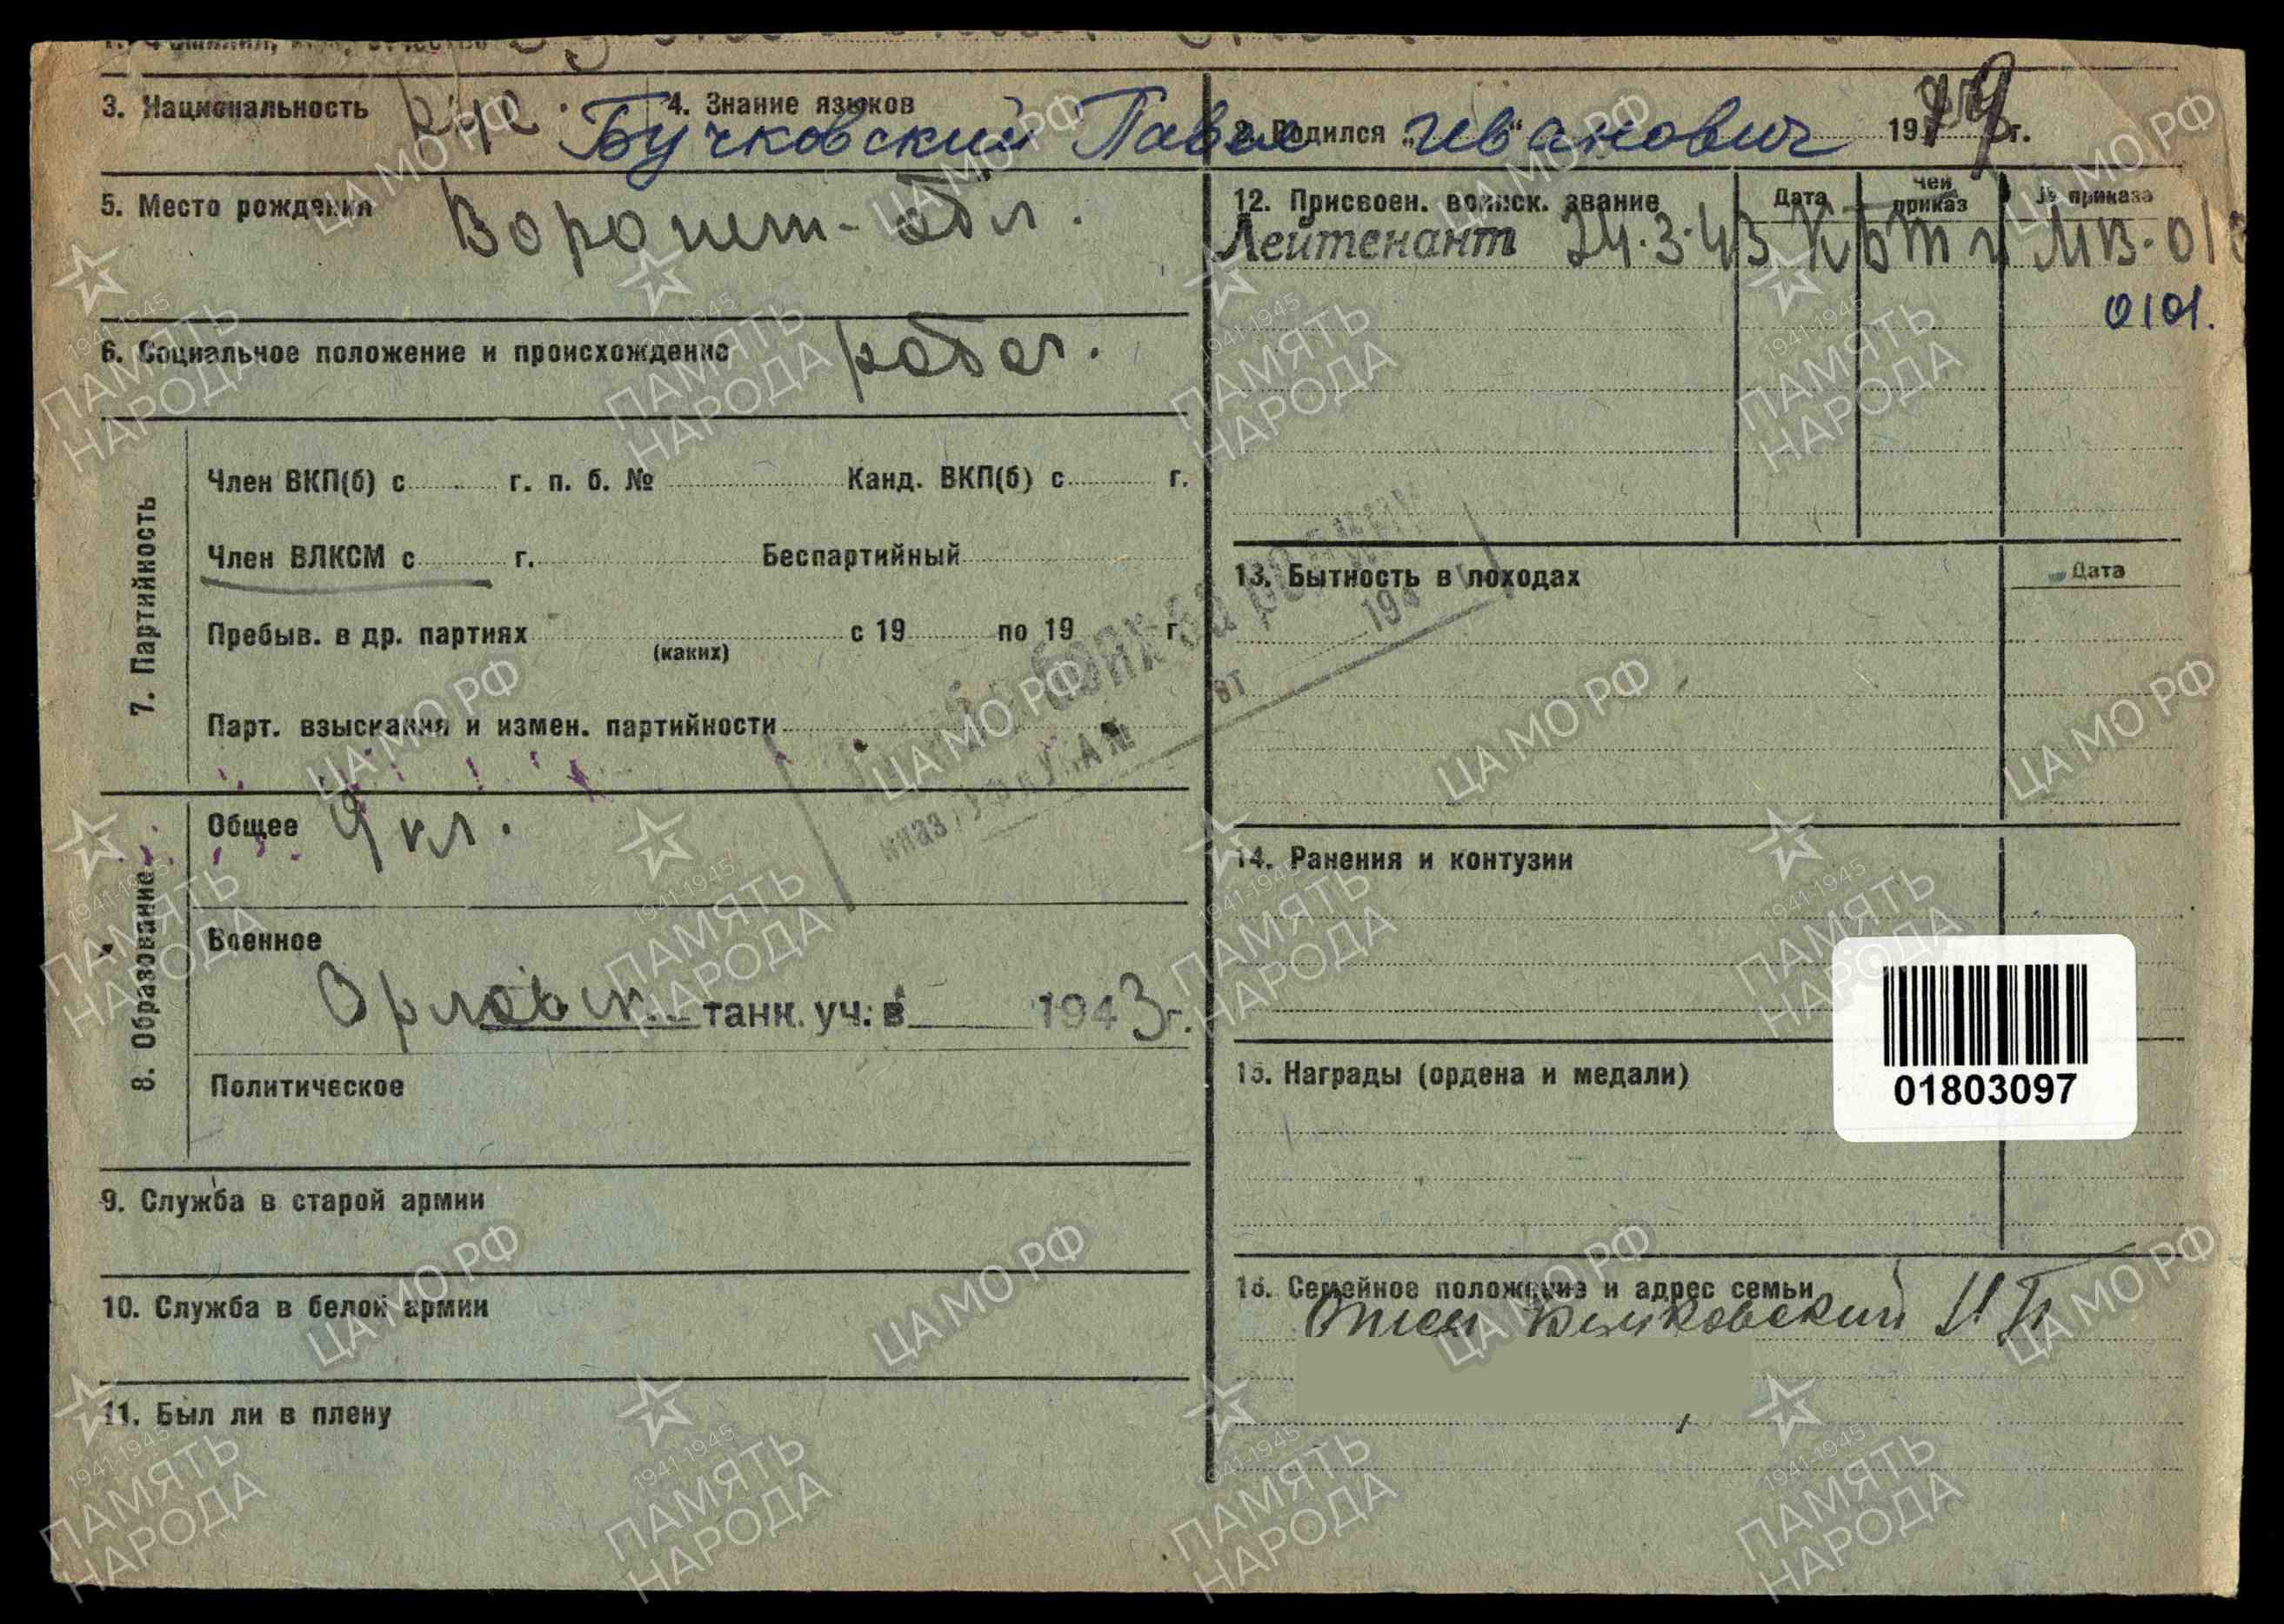 3. Национальность рус. 4. Знание языков
Бучковский Павел Иванович
2. Родился „ “ 19 г.
5. Место рождения Воронеж-обл.
6. Социальное положение и происхождение рабоч.
7. Партийность
Член ВКП(б) с г. п. б. № Канд. ВКП(б) с г.
Член ВЛКСМ с г. Беспартийный
Пребыв. в др. партиях с 19 по 19 г.
(каких)
Парт. взыскания и измен. партийности
8. Образование
Общее 9 кл.
Военное
Орловск. танк. уч. в 1943 г.
Политическое
9. Служба в старой армии
10. Служба в белой армии
11. Был ли в плену
12. Присвоен. воинск. звание Дата Чей приказ № приказа
Лейтенант 24.3.43
0101.
13. Бытность в походах Дата
14. Ранения и контузии
15. Награды (ордена и медали)
01803097
16. Семейное положение и адрес семьи
Отец Бучковский И П
ЦА МО РФ
1941-1945
ПАМЯТЬ
НАРОДА